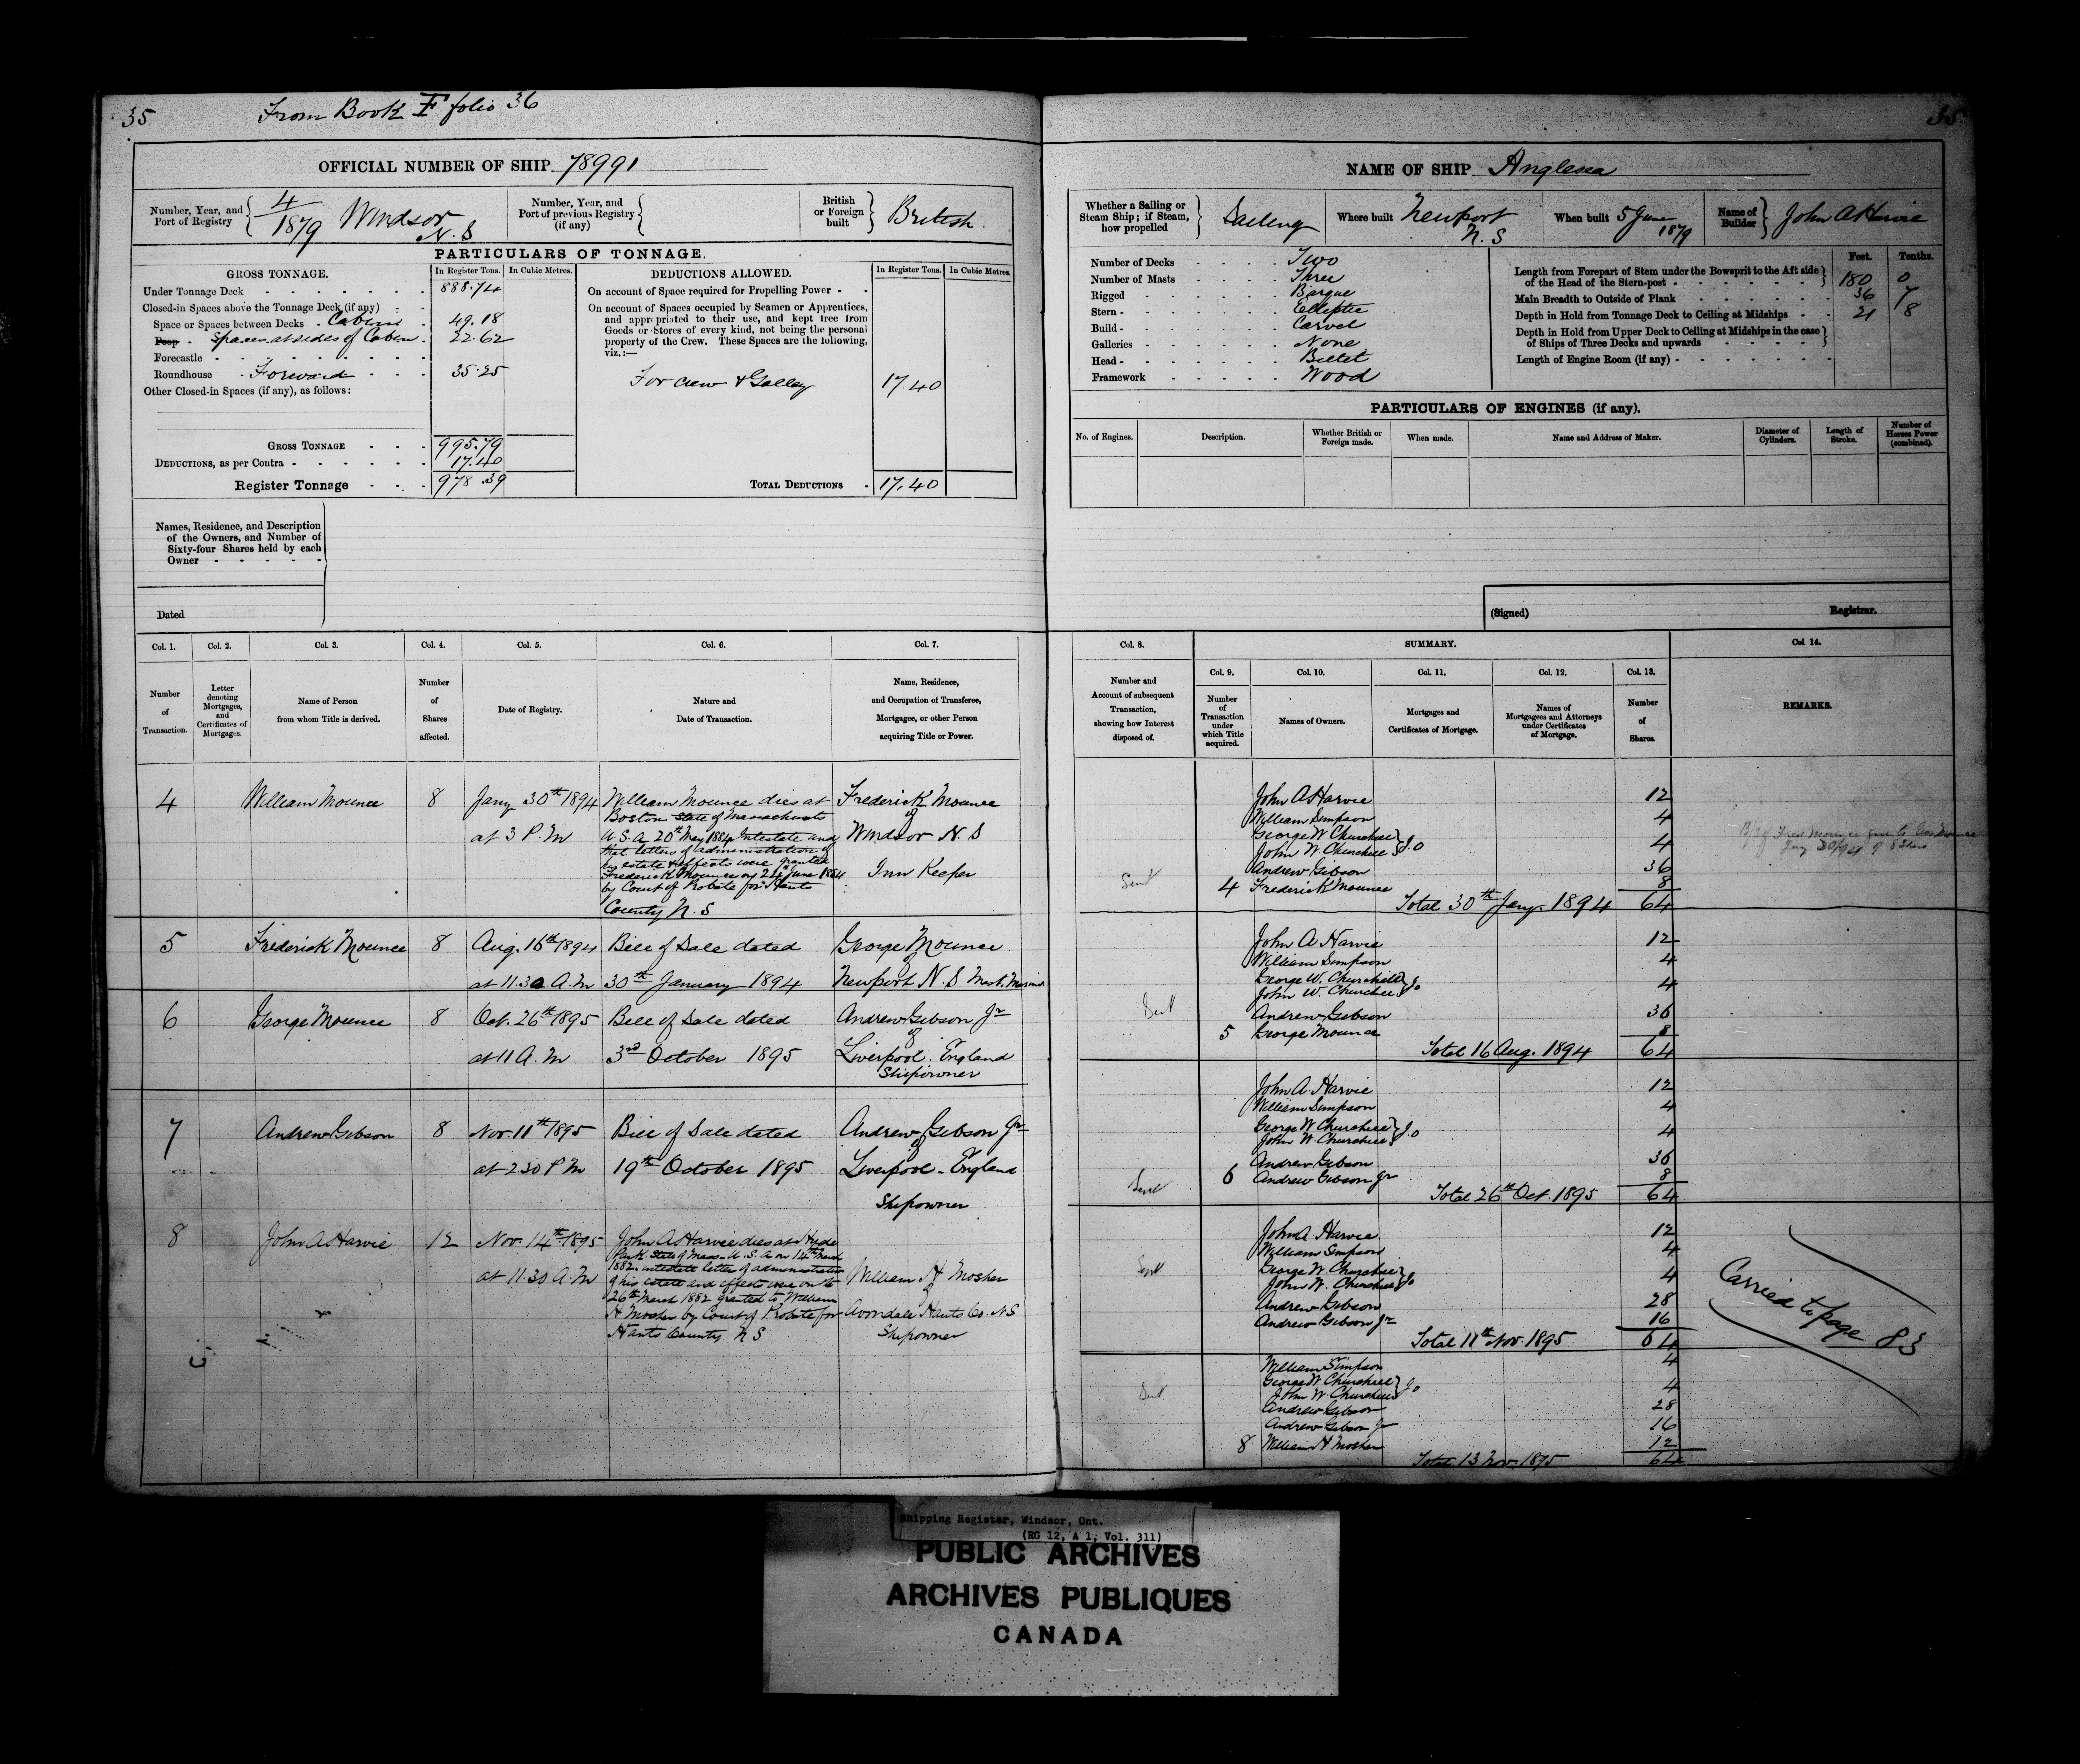 35
From Book F folio 36
OFFICIAL NUMBER OF SHIP 78991
Number, Year, and Port of Registry
4/1879 Windsor N.S
Number, Year, and Port of previous Registry (if any)
British or Foreign built
British
PARTICULARS OF TONNAGE.
GROSS TONNAGE.
In Register Tons.
In Cubic Metres.
DEDUCTIONS ALLOWED.
In Register Tons.
In Cubic Metres.
Under Tonnage Deck 888.74
Closed-in Spaces above the Tonnage Deck (if any)
Space or Spaces between Decks Cabins 49.18
Poop Spaces at sides of Cabin 22.62
Forecastle
Roundhouse Forward 35.25
Other Closed-in Spaces (if any), as follows:
GROSS TONNAGE 995.79
DEDUCTIONS, as per Contra 17.40
Register Tonnage 978.39
On account of Space required for Propelling Power
On account of Spaces occupied by Seamen or Apprentices,
and appropriated to their use, and kept free from
Goods or Stores of every kind, not being the personal
property of the Crew. These Spaces are the following,
viz.:—
For crew & Galley 17.40
TOTAL DEDUCTIONS 17.40
Names, Residence, and Description
of the Owners, and Number of
Sixty-four Shares held by each
Owner
Dated
Col. 1. Col. 2. Col. 3. Col. 4. Col. 5. Col. 6. Col. 7.
Number of Transaction.
Letter denoting Mortgages, and Certificates of Mortgages.
Name of Person from whom Title is derived.
Number of Shares affected.
Date of Registry.
Nature and Date of Transaction.
Name, Residence, and Occupation of Transferee, Mortgagee, or other Person acquiring Title or Power.
4 William Mounce 8 Jany 30th 1894 at 3 P.M
William Mounce dies at
Boston State of Massachusets
U.S.A. 20th May 1884 Intestate and
that letters of administration of
his estate & effects were granted
Frederick Mounce on 24th June 1884
by Court of Probate for Hants
County N.S
Frederick Mounce
of
Windsor N.S
Inn Keeper
5 Frederick Mounce 8 Aug. 16th 1894 at 11.30 A.M
Bill of Sale dated
30th January 1894
George Mounce
of
Newport N.S Mast. Mariner
6 George Mounce 8 Oct. 26th 1895 at 11 A.M
Bill of Sale dated
3rd October 1895
Andrew Gibson Jr
of
Liverpool. England
Shipowner
7 Andrew Gibson 8 Nov. 11th 1895 at 2.30 P.M
Bill of Sale dated
19th October 1895
Andrew Gibson Jr
of
Liverpool - England
Shipowner
8 John A Harvie 12 Nov. 14th 1895 at 11.30 A.M
John A Harvie dies at Hyde
Park State of Mass. U.S.A on 14th March
1882 intestate letter of administration
of his estate and effects were on the
26th March 1882 granted to William
H Mosher by Court of Probate for
Hants County N S
William H Mosher
of
Avondale Hants Co. N S
Shipowner
35
NAME OF SHIP Anglesea
Whether a Sailing or Steam Ship; if Steam, how propelled
Sailing
Where built
Newport N.S
When built
5 June 1879
Name of Builder
John A Harvie
Number of Decks Two
Number of Masts Three
Rigged Barque
Stern Elliptic
Build Carvel
Galleries None
Head Billet
Framework Wood
Feet. Tenths.
Length from Forepart of Stem under the Bowsprit to the Aft side of the Head of the Stern-post 180 0
Main Breadth to Outside of Plank 36 7
Depth in Hold from Tonnage Deck to Ceiling at Midships 21 8
Depth in Hold from Upper Deck to Ceiling at Midships in the case of Ships of Three Decks and upwards
Length of Engine Room (if any)
PARTICULARS OF ENGINES (if any).
No. of Engines.
Description.
Whether British or Foreign made.
When made.
Name and Address of Maker.
Diameter of Cylinders.
Length of Stroke.
Number of Horses Power (combined).
(Signed) Registrar.
Col. 8. SUMMARY. Col 14.
Col. 9. Col. 10. Col. 11. Col. 12. Col. 13.
Number and Account of subsequent Transaction, showing how Interest disposed of.
Number of Transaction under which Title acquired.
Names of Owners.
Mortgages and Certificates of Mortgage.
Names of Mortgagees and Attorneys under Certificates of Mortgage.
Number of Shares.
REMARKS.
John A Harvie 12
William Simpson 4
George W Churchill
John W. Churchill } J.O 4
Andrew Gibson 36
Sent 4 Frederick Mounce 8
Total 30th Jany 1894 64
John A Harvie 12
William Simpson 4
George W. Churchill
John W. Churchill } Jo 4
Sent Andrew Gibson 36
5 George Mounce 8
Total 16 Aug. 1894 64
John A. Harvie 12
William Simpson 4
George W Churchill
John W. Churchill } J.O 4
Andrew Gibson 36
Sent 6 Andrew Gibson Jr 8
Total 26th Oct. 1895 64
John A. Harvie 12
William Simpson 4
Sent George W Churchill
John W. Churchill } Jo 4
Andrew Gibson 28
Andrew Gibson Jr 16
Total 11th Nov. 1895 64
Carried to page 83
William Simpson 4
George W Churchill
John W Churchill } Jo 4
Sent Andrew Gibson 28
Andrew Gibson Jr 16
8 William H Mosher 12
Total 13 Nov. 1895 64
Shipping Register, Windsor, Ont.
(RG 12, A 1, Vol. 311)
PUBLIC ARCHIVES
ARCHIVES PUBLIQUES
CANADA